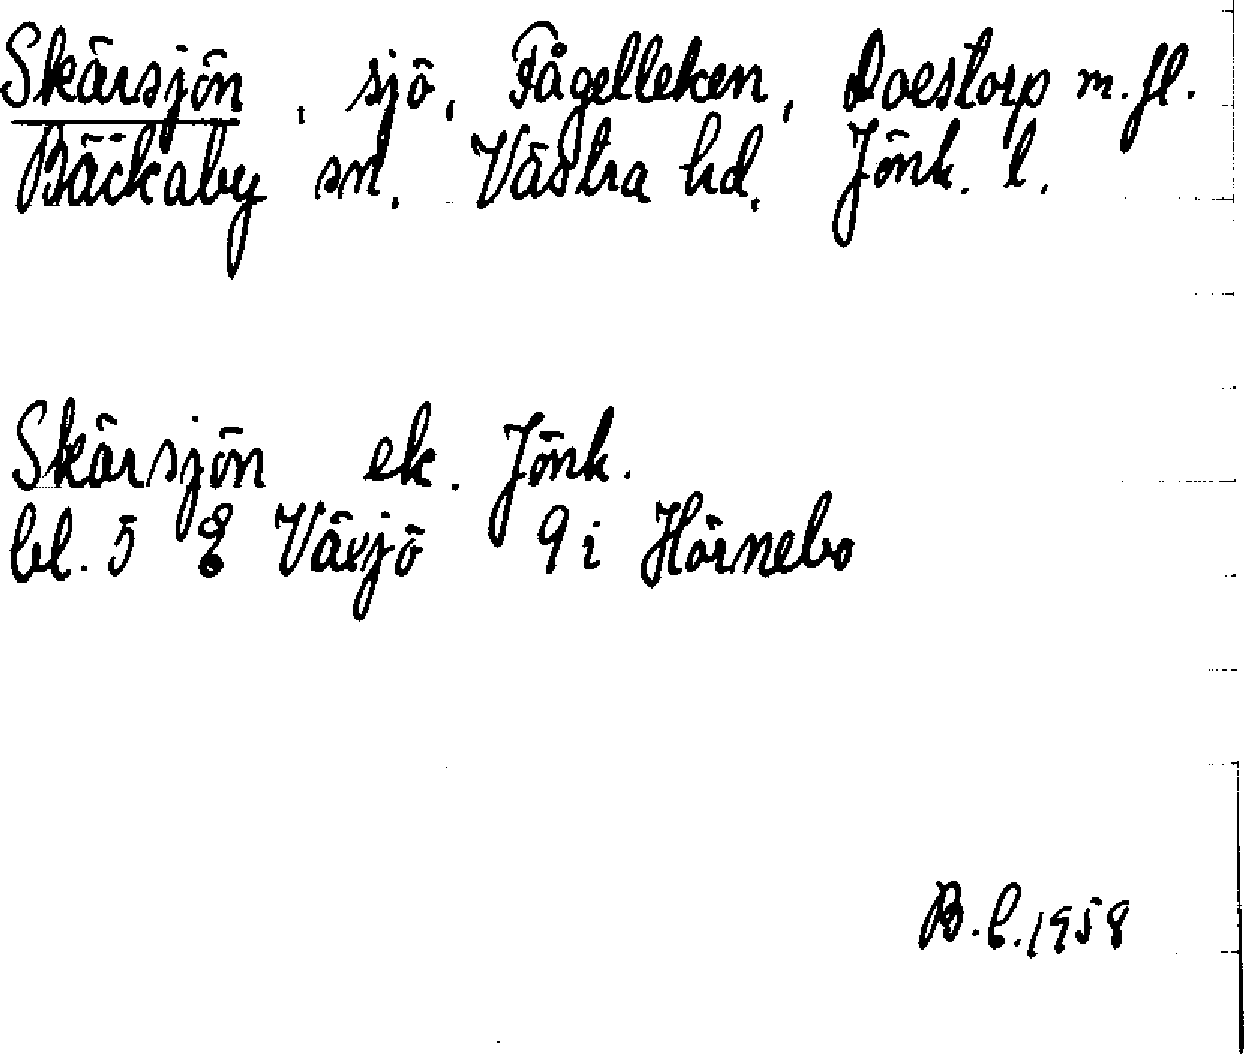 Skärsjön, sjö, Fågelleken, Doestorp m.fl.
Bäckaby sn. Västra hd. Jönk. l.
Skärsjön ek. Jönk.
bl. 5 E Växjö 9 i Hörnebo
B.E.1958